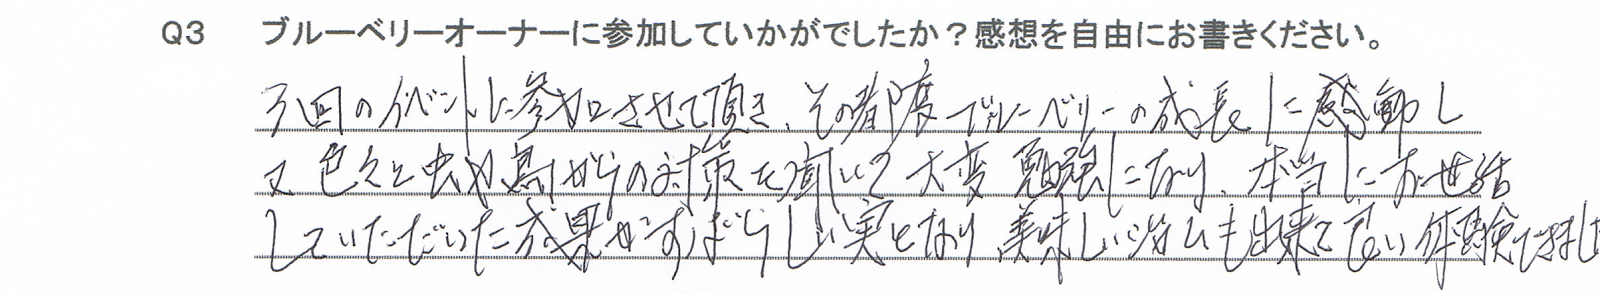 Q3 ブルーベリーオーナーに参加していかがでしたか？感想を自由にお書きください。
3回のイベントに参加させて頂き、その都度ブルーベリーの成長に感動し
又色々と虫や鳥からの対策を聞いて大変勉強になり、本当にお世話
していただいた成果がすばらしい実となり美味しいジャムも出来て良い体験できました